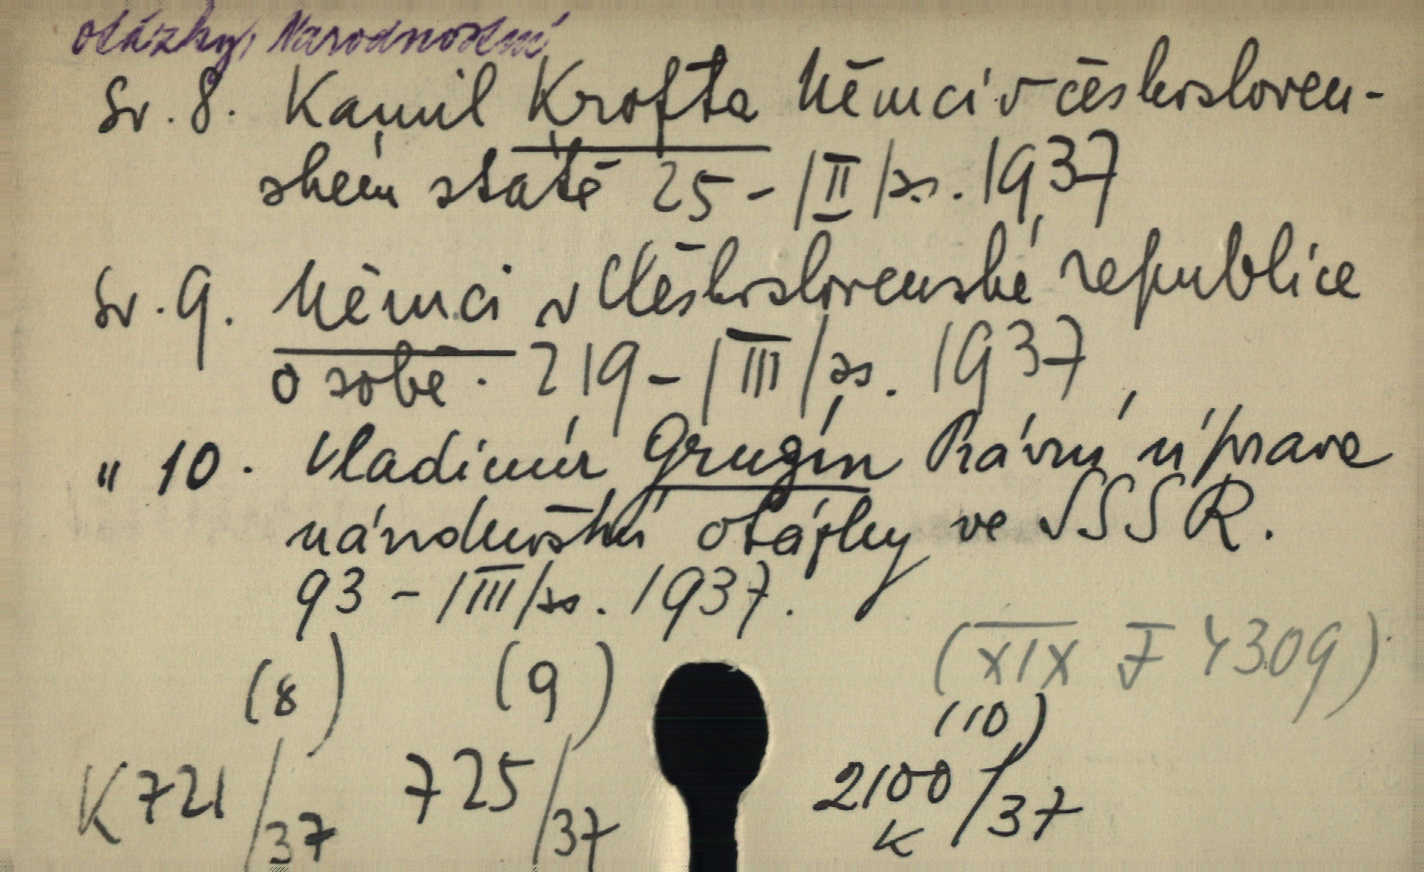 otázky, Národnostní
Sv. 8. Kamil Krofta Němci v českosloven-
ském státě 25 - / II / ss. 1937
Sv. 9. Němci v Československé republice
o sobě. 219 - / III / ss. 1937
" 10. Vladimír Grugín Právní úprava
národnostní otázky ve SSSR.
93 - / III / ss. 1937.
(XIX F 4309)
(8) (9) (10)
K 721/37 725/37 2100/37
K